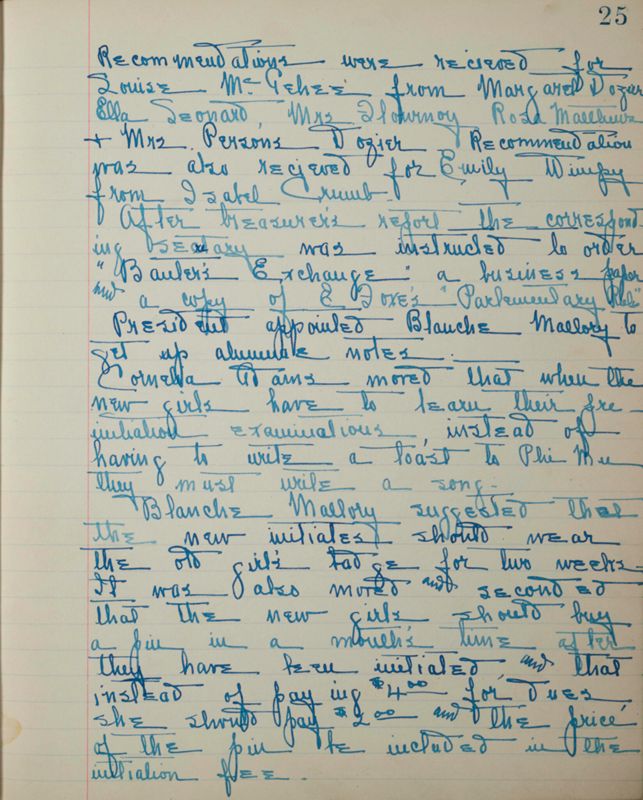 25
Recommendations were recieved for
Louise McGehee from Margaret Dozier
Ella Leonard, Mrs Flournoy Rosa Matthews
+ Mrs. Persons Dozier. Recommendation
was also recieved for Emily Wimpy
from Isabel Crumb.
After treasurer's report the correspond
ing secatary was instructed to order
" Banter's Exchange " a business paper
and a copy of E Foxe's "Parlementary Rule"
President appointed Blanche Mallory to
get up alumnae notes.
Cornelia Adams moved that when the
new girls have to learn their pre
initiation examinations, instead of
having to write a toast to Phi Mu
they must write a song.
Blanche Mallory suggested that
the new initiates should wear
the old girls badge for two weeks.
It was also moved and seconded
that the new girls should buy
a pin in a month's time after
they have been initiated and that
instead of paying $4.00 for dues
she should pay $2.00 and the price
of the pin be included in the
initiation fee.